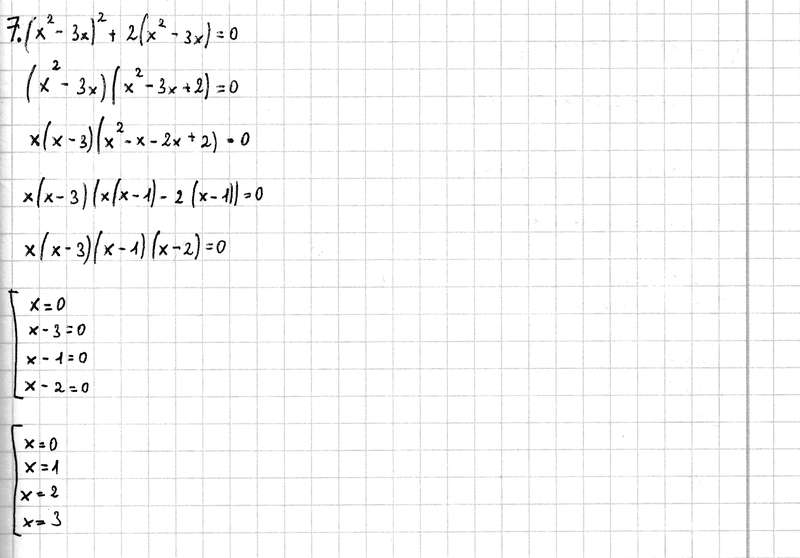 7. (x² - 3x)² + 2(x² - 3x) = 0
(x² - 3x)(x² - 3x + 2) = 0
x(x - 3)(x² - x - 2x + 2) = 0
x(x - 3)(x(x - 1) - 2(x - 1)) = 0
x(x - 3)(x - 1)(x - 2) = 0
[ x = 0
x - 3 = 0
x - 1 = 0
x - 2 = 0
[ x = 0
x = 1
x = 2
x = 3